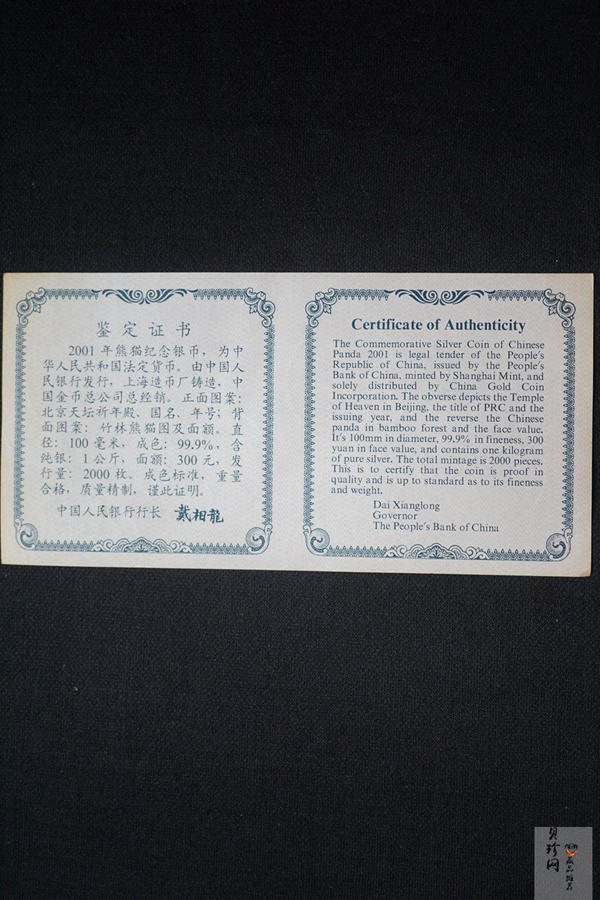 鉴定证书
2001年熊猫纪念银币，为中
华人民共和国法定货币。由中国人
民银行发行，上海造币厂铸造，中
国金币总公司总经销。正面图案：
北京天坛祈年殿、国名、年号；背
面图案：竹林熊猫图及面额。直
径：100毫米，成色：99.9%，含
纯银：1公斤，面额：300元，发
行量：2000枚。成色标准，重量
合格，质量精制，谨此证明。
中国人民银行行长 戴相龍
Certificate of Authenticity
The Commemorative Silver Coin of Chinese
Panda 2001 is legal tender of the People's
Republic of China, issued by the People's
Bank of China, minted by Shanghai Mint, and
solely distributed by China Gold Coin
Incorporation. The obverse depicts the Temple
of Heaven in Beijing, the title of PRC and the
issuing year, and the reverse the Chinese
panda in bamboo forest and the face value.
It's 100mm in diameter, 99.9% in fineness, 300
yuan in face value, and contains one kilogram
of pure silver. The total mintage is 2000 pieces.
This is to certify that the coin is proof in
quality and is up to standard as to its fineness
and weight.
Dai Xianglong
Governor
The People's Bank of China
贝珍网
藏品推荐